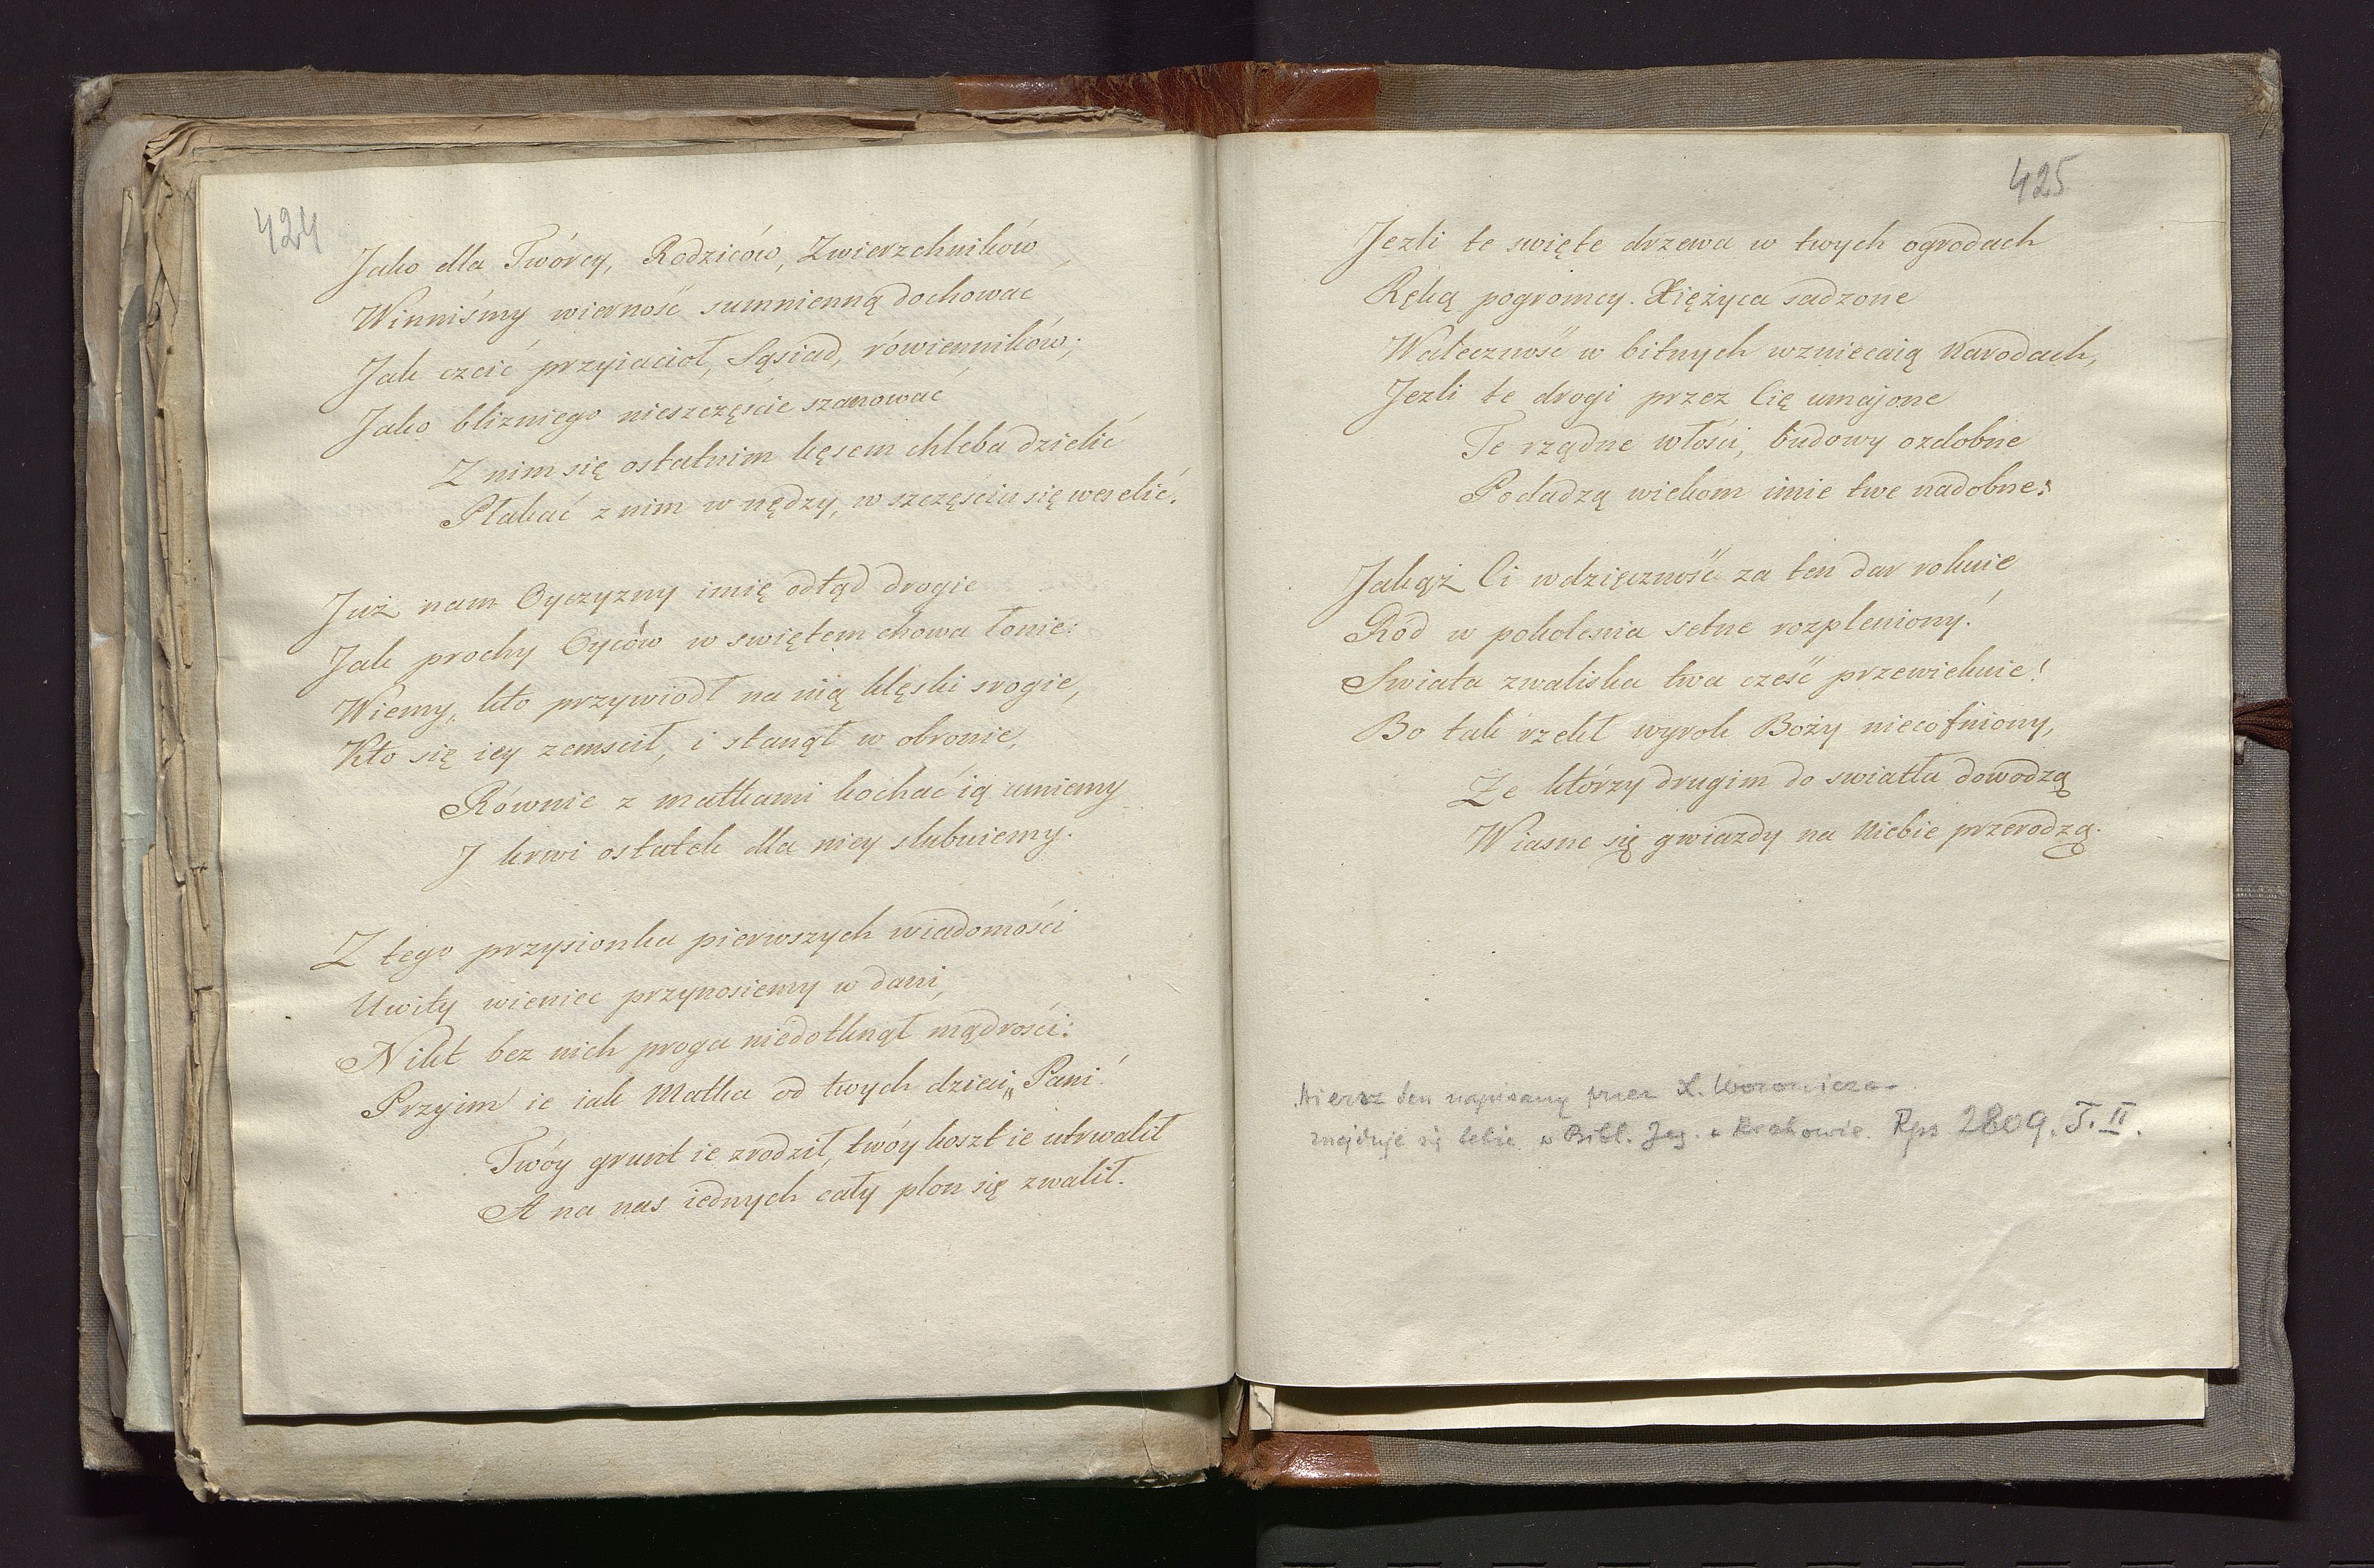 424
Jako dla Twórcy, Rodziców, Zwierzchników,
Winniśmy wierność sumnienną dochować
Jak czcić przyiacioł, Sąsiad, rówienników;
Jako blizniego nieszczęście szanować
Z nim się ostatnim kęsem chleba dzielić
Płakać z nim w nędzy, w szczęściu się weselić.
Już nam Oyczyzny imię odtąd drogie
Jak prochy Oyców w swiętem chowa łonie:
Wiemy, kto przywiodł na nią klęski srogie,
Kto się iey zemscił, i stanął w obronie,
Równie z matkami kochać ią umiemy
J krwi ostatek dla niey slubuiemy.
Z tego przysionka pierwszych wiadomości
Uwity wieniec przynosiemy w dani,
Nikt bez nich proga niedotknął mądrości:
Przyim ie iak Matka od twych dzieci, Pani!
Twóy grunt ie zrodził, twóy koszt ie utrwalił
A na nas iednych cały plon się zwalił.
425
Jezli te swięte drzewa w twych ogrodach
Ręką pogromcy Xiężyca sadzone
Waleczność w bitnych wzniecaią Narodach,
Jezli te drogi przez Cię umajone
Te rządne włości, budowy ozdobne
Podadzą wiekom imie twe nadobne:
Jakąż Ci wdzięczność za ten dar roknie
Ród w pokolenia setne rozpleniony!
Swiata zwaliska twa cześć przewieknie!
Bo tak rzekł wyrok Boży niecofniony,
Ze którzy drugim do swiatła dowodzą
W iasne się gwiazdy na Niebie przerodzą.
Wiersz ten napisany przez X. Woronicza
znajduje się także w Bibl. Jag. w Krakowie. Rps 2809. T. II.